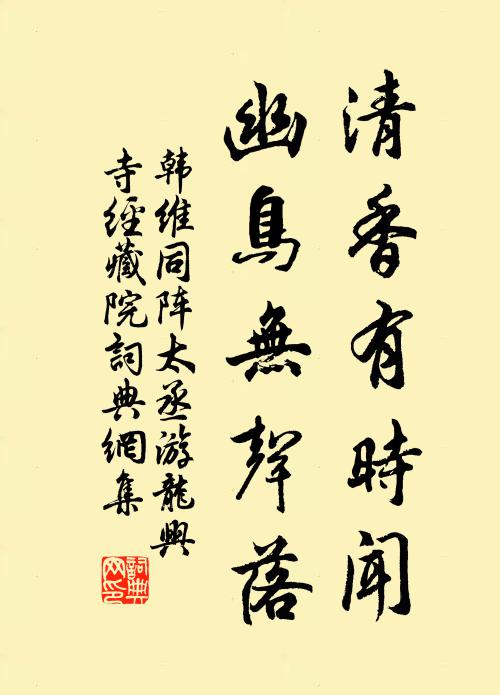 清香有時聞
幽鳥無聲落
韩維同阵太丞游龍興
寺經藏院詞典網集
詞典网印